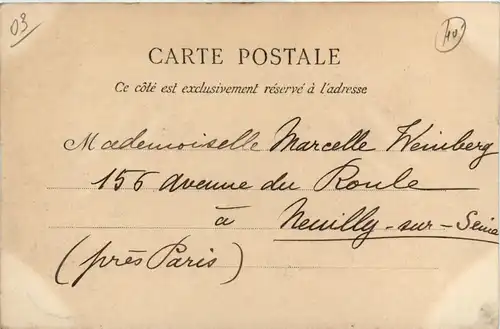 03
40
CARTE POSTALE
Ce côté est exclusivement réservé à l'adresse
Mademoiselle Marcelle Weinberg
156 avenue du Roule
à Neuilly-sur-Seine
(près Paris)